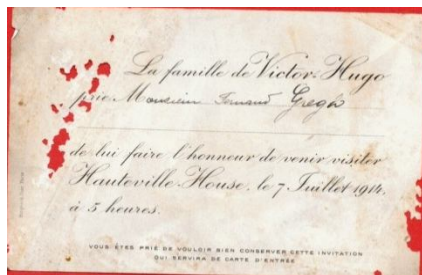 La famille de Victor Hugo
prie Monsieur Fernand Gregh
de lui faire l'honneur de venir visiter
Hauteville House, le 7 Juillet 1914,
à 5 heures.
VOUS ÊTES PRIÉ DE VOULOIR BIEN CONSERVER CETTE INVITATION
QUI SERVIRA DE CARTE D'ENTRÉE